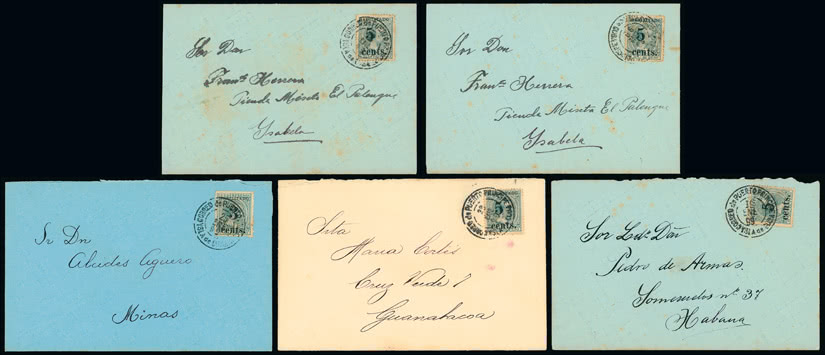 Sor Don
Franco Herrera
Tienda Mixta El Palenque
Isabela
5
cents.
Sor Don
Franco Herrera
Tienda Mixta El Palenque
Isabela
5
cents.
Sr Dn
Alcides Aguero
Minas
cents.
Srta
Maria Cortés
Cruz Verde 1
Guanabacoa
5
cents.
PUERTO PRINCIPE
Pedro de Armas
Someruelos nº 37
Habana
16
ENE
99
cents.